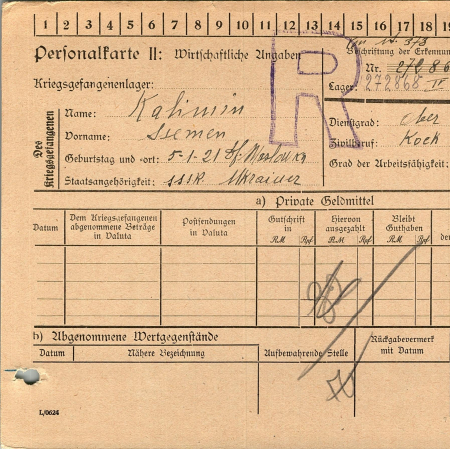 1 2 3 4 5 6 7 8 9 10 11 12 13 14 15 16 17 18 19
Personalkarte II: Wirtschaftliche Angaben
Beschriftung der Erkennun
Nr. 272868
Kriegsgefangenenlager:
Lager: 272868 IV
R
Des Kriegsgefangenen
Name: Kalimin
Vorname: Semen
Dienstgrad: ober
Zivilberuf: Kock
Geburtstag und -ort: 5-1-21
Grad der Arbeitsfähigkeit:
Staatsangehörigkeit: SSSR Ukrainer
a) Private Geldmittel
Datum
Dem Kriegsgefangenen abgenommene Beträge in Valuta
Postsendungen in Valuta
Gutschrift in
RM Rpf.
Hiervon ausgezahlt
RM Rpf.
Bleibt Guthaben
RM Rpf.
de
b) Abgenommene Wertgegenstände
Datum
Nähere Bezeichnung
Aufbewahrende Stelle
Rückgabevermerk mit Datum
L/0624